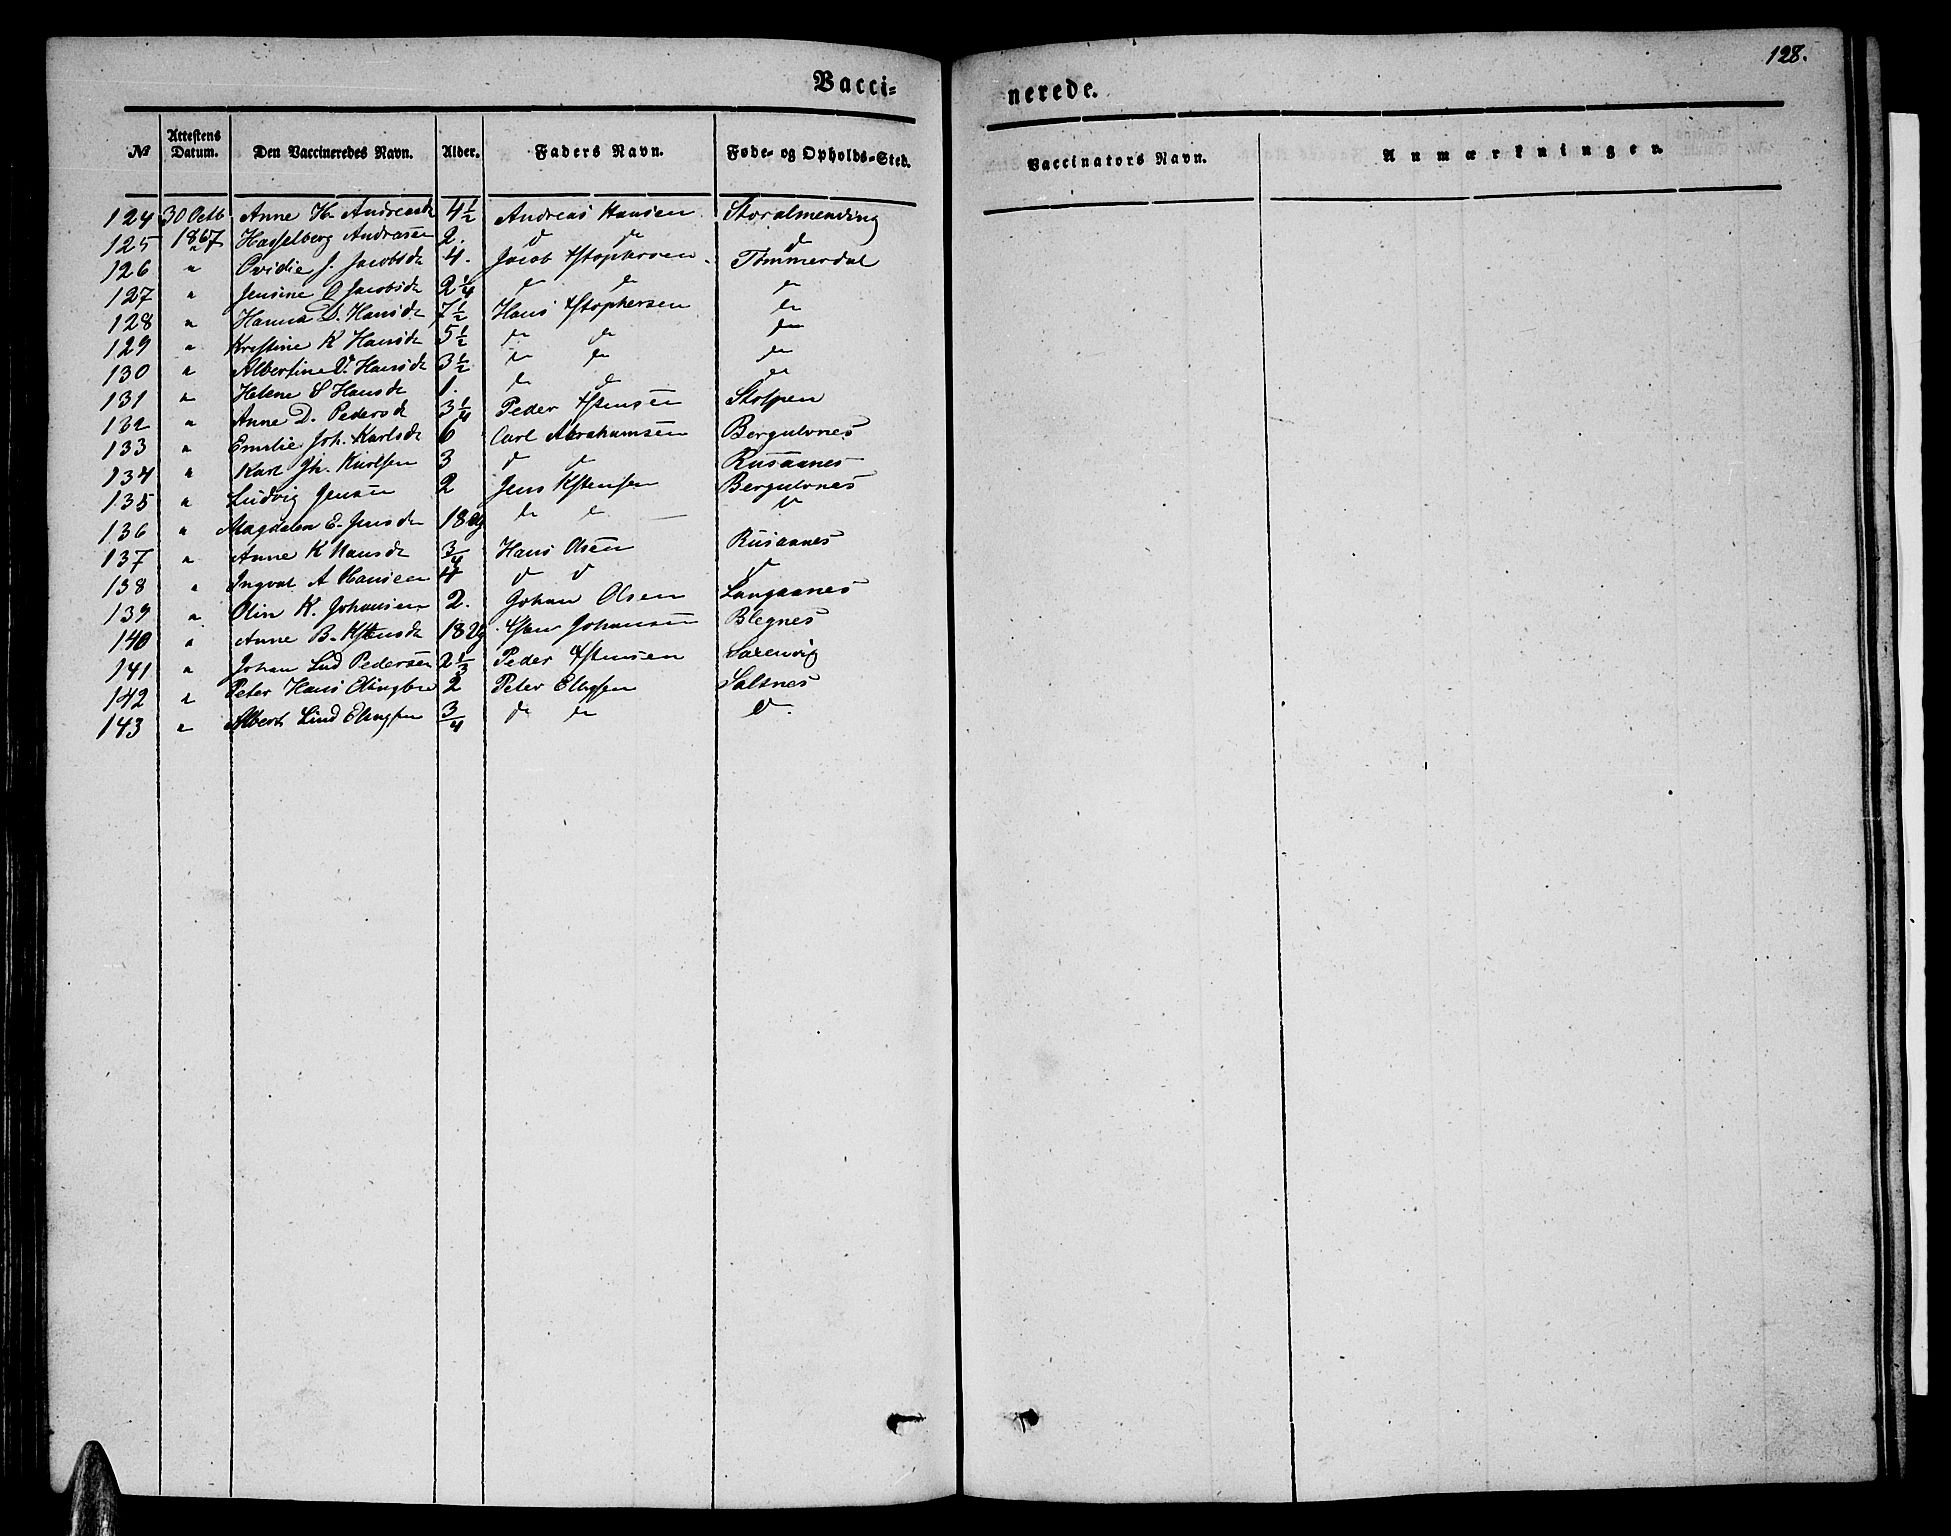 128.
Vacci- nerede.
No Attestens Datum. Den Vaccineredes Navn. Alder. Faders Navn. Føde- og Opholds-Sted. Vaccinators Navn. Anmærkninger.
124 30 Octb Anne H. Andreasd 4 1/2 Andreas Hansen Storalmending
125 1867 Hasselberg Andrasen 2. d d d
126 " Ovidie J. Jacobsd 4. Jacob Xstophersen Tømmerdal
127 " Jensine O Jacobsd 2 1/4 d d d
128 " Hanna D. Hansd 7 1/2 Hans Xstophersen d
129 " Kristine K Hansd 5 1/2 d d d
130 " Albertine V. Hansd 3 1/2 d d d
131 " Helene S Hansd 1. d d d
132 " Anne D. Pedersd 3 1/4 Peder Xstensen Stolpen
133 " Emelie Joh. Karlsd 6 Carl Abrahamsen Bergulvnes
134 " Karl Jh. Karlsen 3 d d Rusaanes
135 " Ludvig Jensen 2 Jens Kstensen Bergulvnes
136 " Magdalen E. Jensd 18 Ug d d d
137 " Anne K Hansd 3/4 Hans Olsen Rusaanes
138 " Ingval A Hansen 4 d d d
139 " Olin K. Johansen 2. Johan Olsen Langaanes
140 " Anne B. Kstensd 18 Ug Xsten Johansen Blegnes
141 " Johan Lud Pedersen 2 1/3 Peder Xstensen
142 " Peter Hans 2 Peter Saltnes
143 " Albert Lind 3/4 d d d.